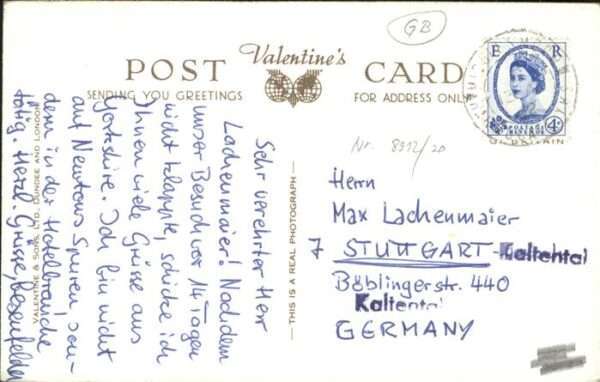 GB
POST Valentine's CARD
SENDING YOU GREETINGS FOR ADDRESS ONLY
E R
4D
POSTAGE REVENUE
Nr. 8912/20
Sehr verehrter Herr
Lachenmaier! Nachdem
unser Besuch vor 14 Tagen
nicht klappte, schicke ich
Ihnen viele Grüsse aus
Yorkshire. Ich bin nicht
auf Newtons Spuren, son-
dern in der Hotelbranche
tätig. Herzl. Grüsse,
VALENTINE & SONS, LTD., DUNDEE AND LONDON
— THIS IS A REAL PHOTOGRAPH —
Herrn
Max Lachenmaier
7 STUTTGART-Kaltental
Böblingerstr. 440
Kaltental
GERMANY